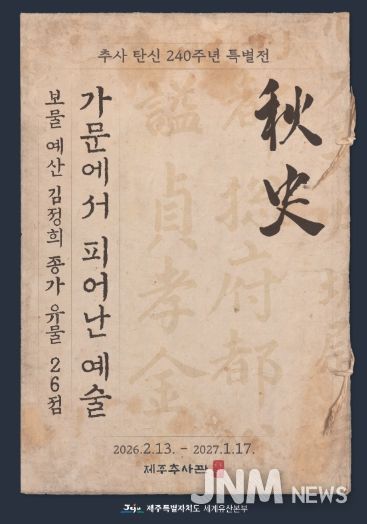 추사 탄신 240주년 특별전
秋史
가문에서 피어난 예술
보물 예산 김정희 종가 유물 26점
2026.2.13. - 2027.1.17.
제주추사관
Jeju 제주특별자치도 세계유산본부
JNM NEWS
諡貞孝金
府都